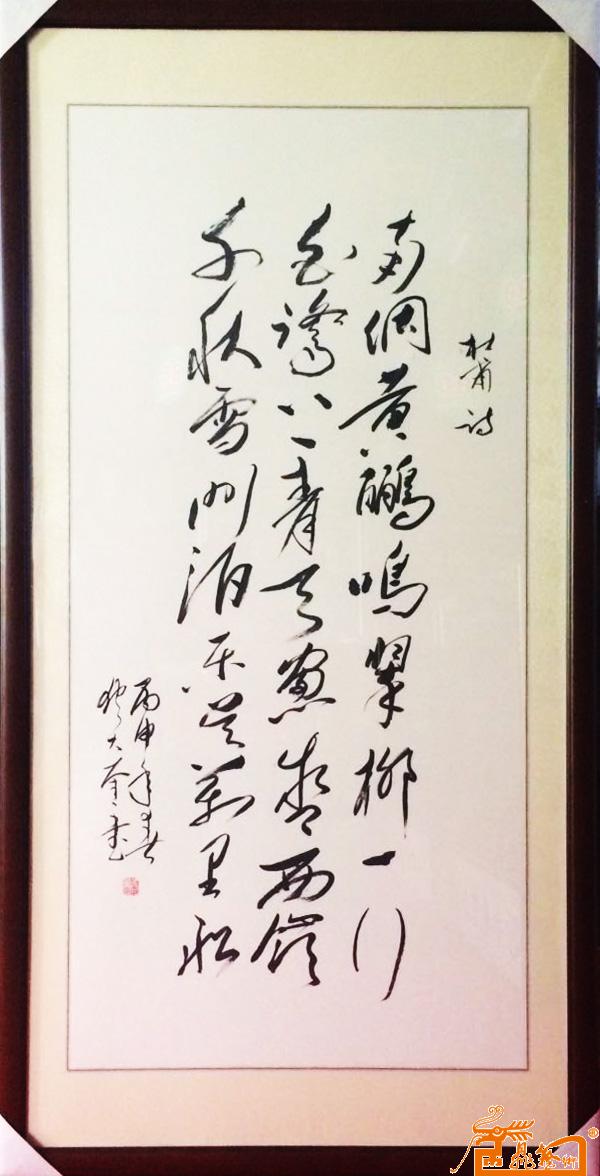 杜甫詩
兩個黄鸝鳴翠柳一行
白鷺上青天窗含西嶺
千秋雪門泊東吳萬里船
丙申年春
大奎書